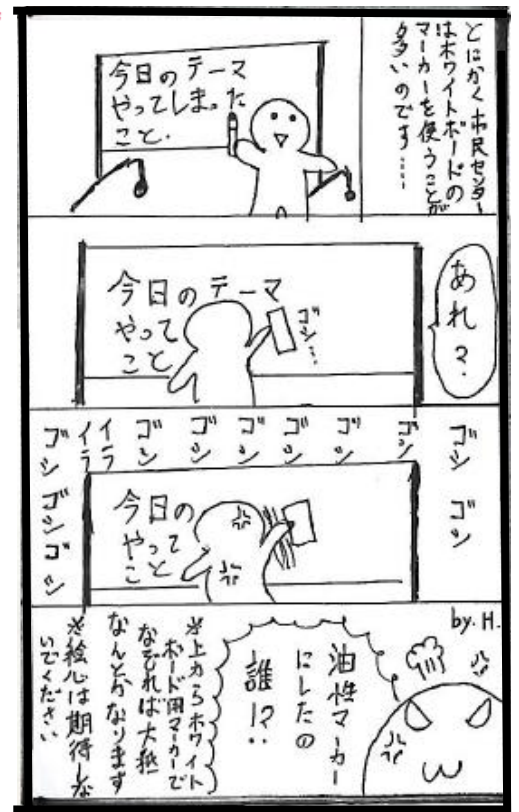 とにかく市民センター
はホワイトボードの
マーカーを使うことが
多いのです……
今日のテーマ
やってしまった
こと.
あれ？
今日のテーマ
やって
こと
ゴシ…
ゴシ
ゴシ
ゴシ
ゴシ
ゴシ
ゴシ
ゴシ
ゴシ
イラ
イラ
ゴシ
ゴシ
ゴシ
今日の
やって
こと
by.H.
油性マーカー
にしたの
誰!?..
※上からホワイト
ボード用マーカーで
なぞれば大抵
なんとかなります
※絵心は期待しな
いでください